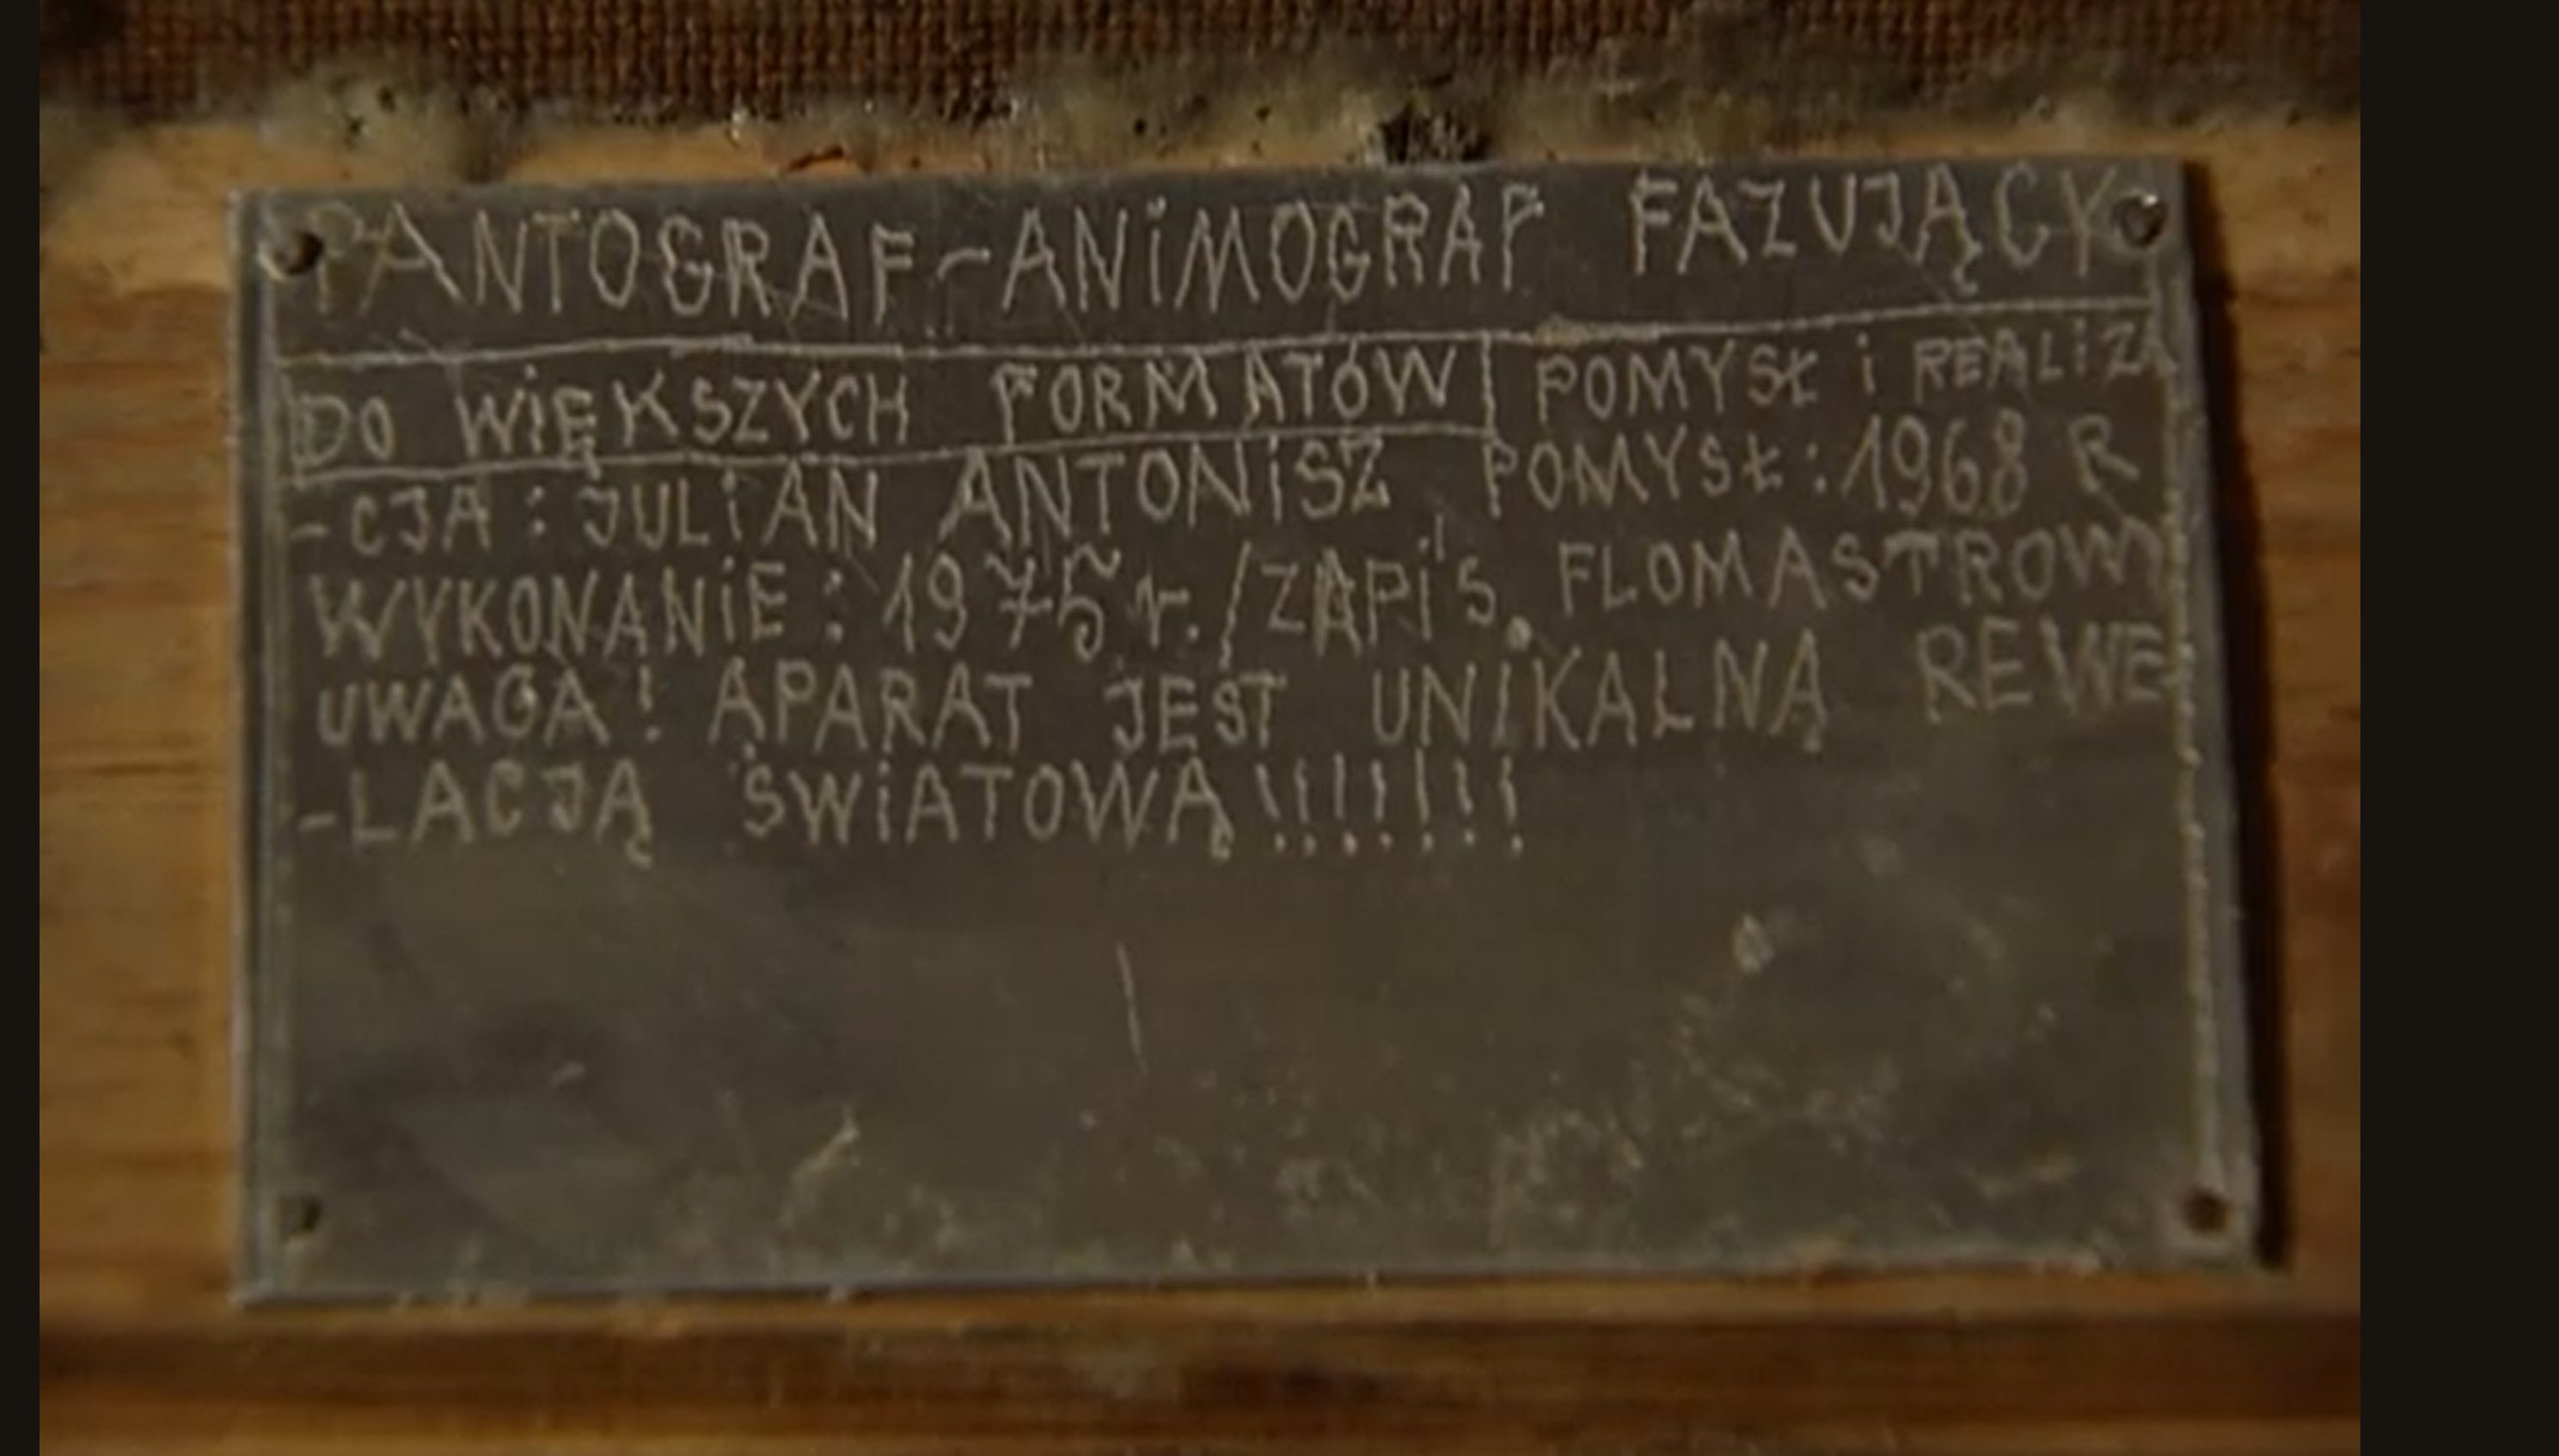 PANTOGRAF-ANiMOGRAF FAZUJĄCY
DO WiĘKSZYCH FORMATÓW POMYSŁ i REALiZA
-CJA : JULiAN ANTONiSZ POMYSŁ: 1968 R
WYKONANiE : 1975 r. / ZAPiS. FLOMASTROWY
UWAGA! APARAT JEST UNiKALNĄ REWE
-LACJĄ ŚWiATOWĄ!!!!!!!